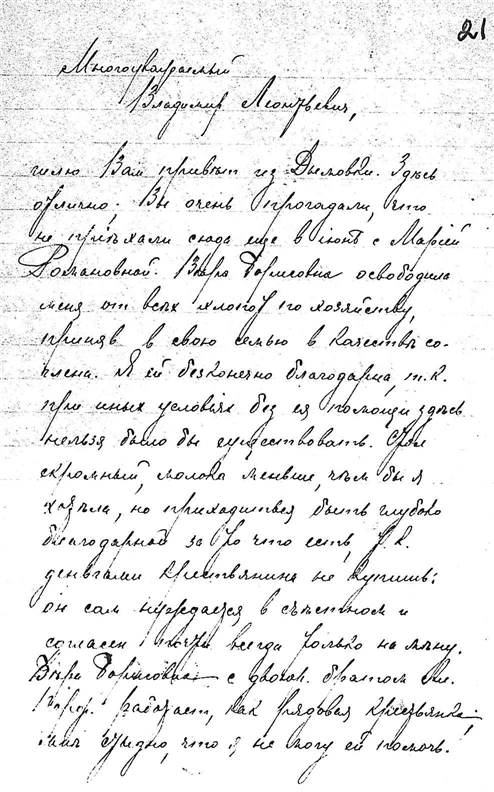 21
Многоуважаемый
Владимир Леонтьевич,
шлю Вам привѣт из Дымовки. Здѣсь
отлично. Вы очень прогадали, что
не приѣхали сюда еще в iюнѣ с Марiей
Романовной. Вѣра Борисовна освободила
меня от всѣх хлопот по хозяйству,
приняв в свою семью в качествѣ со-
члена. Я ей безконечно благодарна, т.к.
при иных условiях без ея помощи здѣсь
нельзя было бы существовать. Стол
скромный, молока меньше, чѣм бы я
хотѣла, но приходиться быть глубоко
благодарной за то что есть, т.к.
деньгами крестьянина не купишь:
он сам нуждается в съѣстном и
согласен почти всегда только на мѣну.
Вѣра Борисовна с двоюр. братом
работает, как рядовая крестьянка;
стыдно, что я не могу ей помочь.